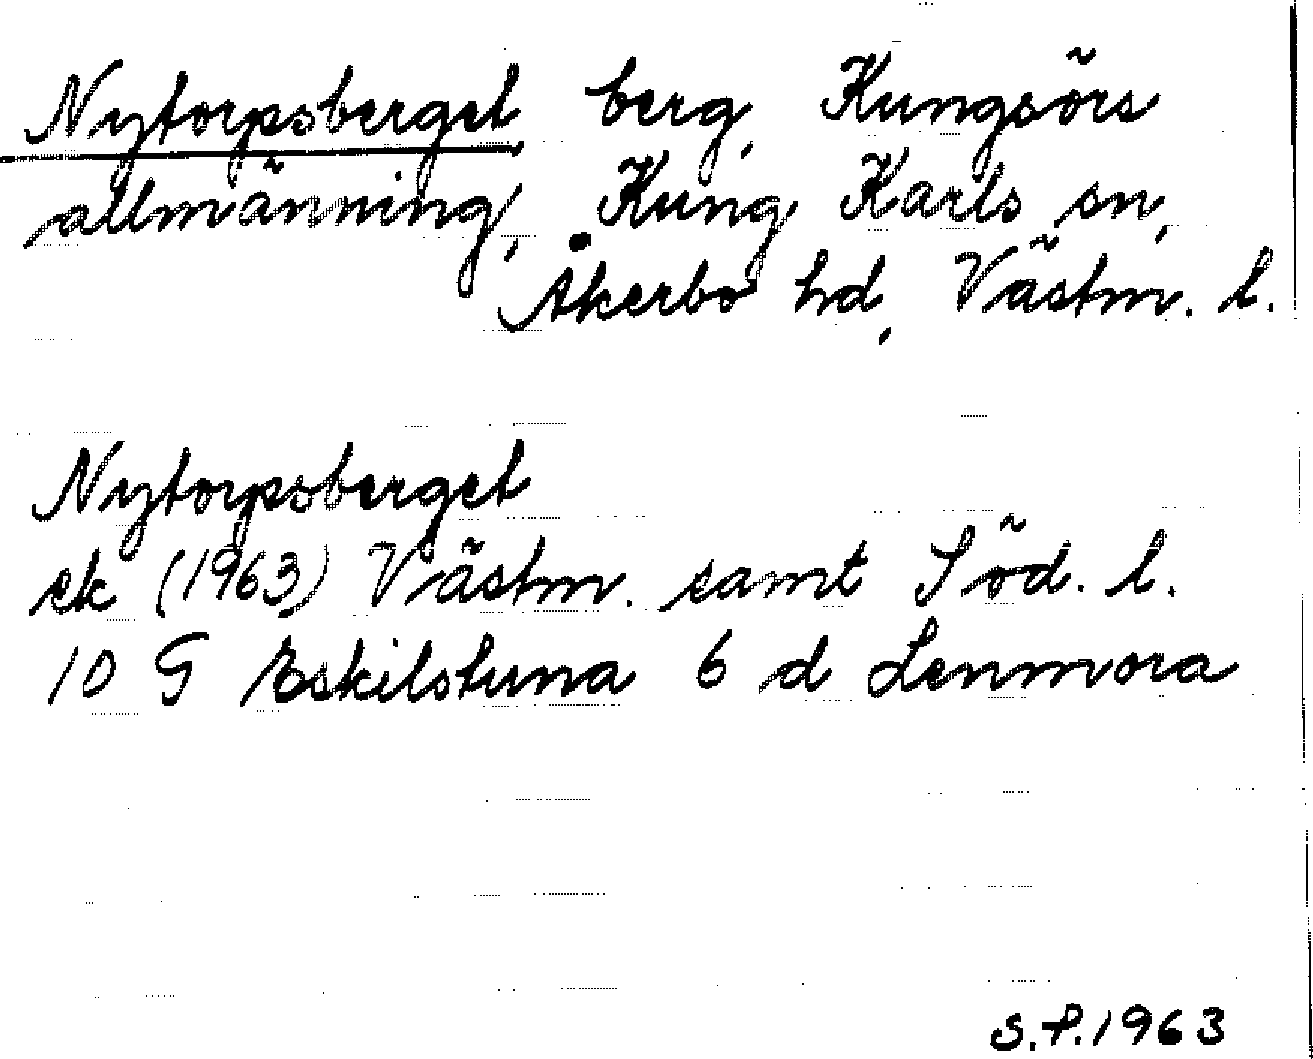 Nytorpsberget, berg, Kungsörs
allmänning, Kung Karls sn,
Åkerbo hd, Västm. l.
Nytorpsberget
ek (1963) Västm. samt Söd. l.
10 G Eskilstuna 6 d Lenmora
S.P. 1963